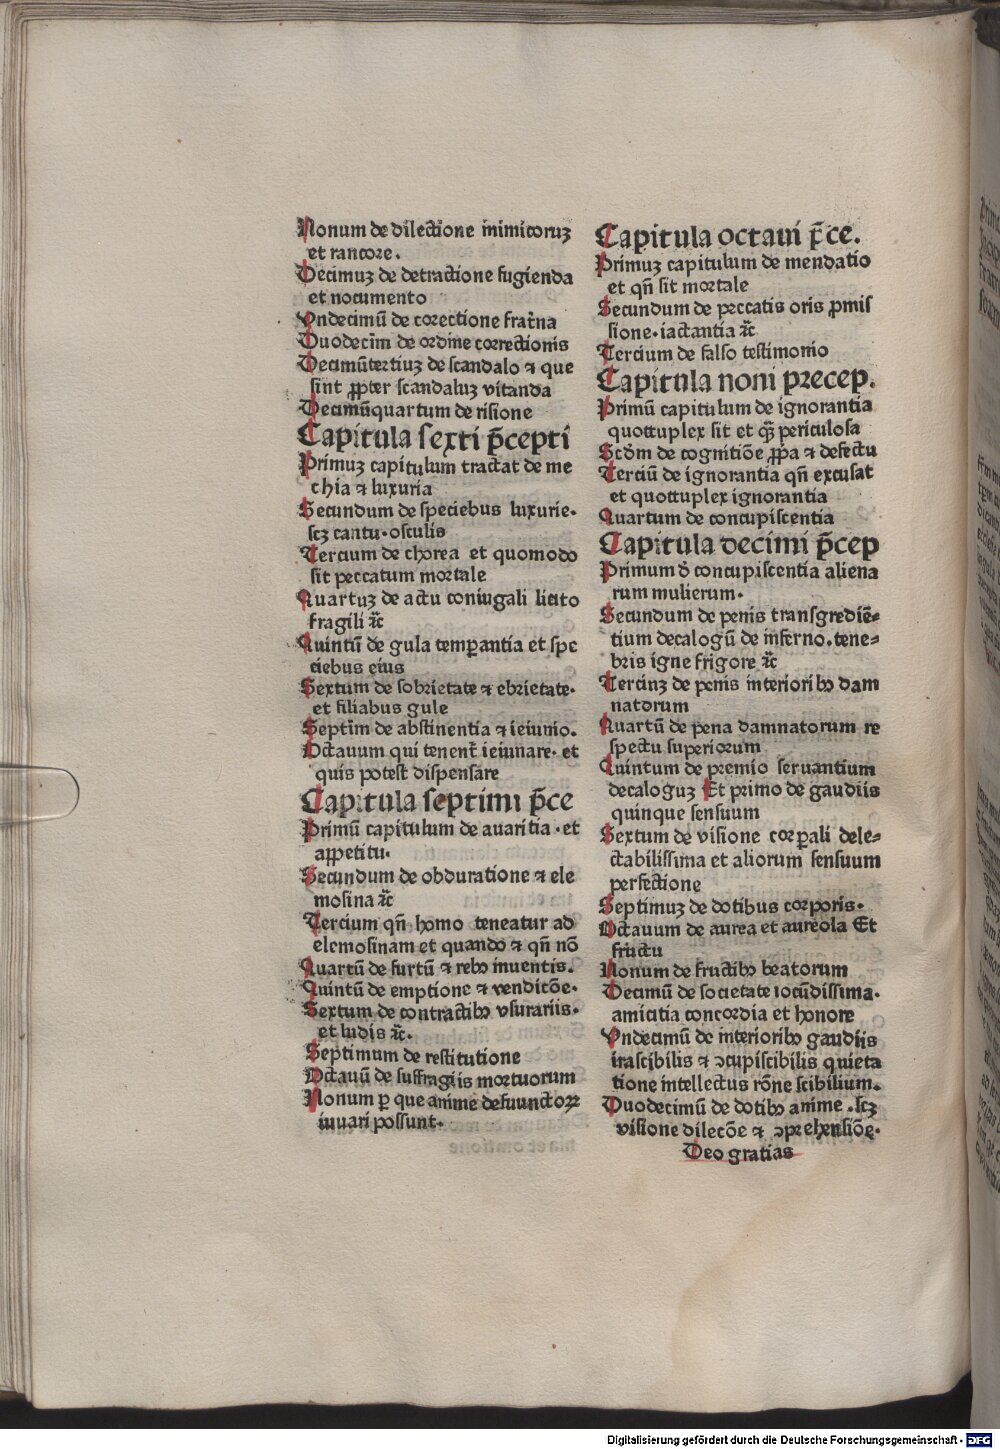 Nonum de dilectione inimicoruꝫ
et rancore.
Decimuꝫ de detractione fugienda
et nocumento
Vndecimū de corectione frat̄na
Duodecīm de ordine correctionis
Decimūtertiuꝫ de scandalo ⁊ que
sint ꝓpter scandaluꝫ vitanda
Decimūquartum de risione
Capitula sexti p̄cepti
Primuꝫ capitulum tractat de me
chia ⁊ luxuria
Secundum de speciebus luxurie.
scꝫ cantu. osculis
Tercium de chorea et quomodo
sit peccatum mortale
Quartuꝫ de actu coniugali licito
fragili ⁊c̄
Quintū de gula temꝑantia et spe
ciebus eius
Sextum de sobrietate ⁊ ebrietate.
et filiabus gule
Septīm de abstinentia ⁊ ieiunio.
Octauum qui tenent̄ ieiunare. et
quis potest dispensare
Capitula septimi p̄ce
Primū capitulum de auaritia. et
aꝓpetitu.
Secundum de obduratione ⁊ ele
mosina ⁊c̄
Tercium qn̄ homo teneatur ad
elemosinam et quando ⁊ qn̄ nō
Quartū de furtū ⁊ rebꝫ inuentis.
Quintū de emptione ⁊ venditōe.
Sextum de contractibꝫ vsurariis.
et ludis ⁊c̄.
Septimum de restitutione
Octauū de suffragiis mortuorum
Nonum ꝑ que anime defunctoꝝ
iuuari possunt.
Capitula octaui p̄ce.
Primuꝫ capitulum de mendatio
et qn̄ sit mortale
Secundum de peccatis oris ꝓmis
sione. iactantia ⁊c̄
Tercium de falso testimonio
Capitula noni precep.
Primū capitulum de ignorantia
quottuplex sit et qꝫ̄ periculosa
Scd̄m de cognitiōe ꝓpa ⁊ defectu
Terciū de ignorantia qn̄ excusat
et quottuplex ignorantia
Quartum de concupiscentia
Capitula decimi p̄cep
Primum d̄ concupiscentia aliena
rum mulierum.
Secundum de penis transgrediē=
tium decalogū de inferno. tene=
bris igne frigore ⁊c̄
Terciuꝫ de penis interioribꝫ dam
natorum
Quartū de pena damnatorum re
spectu superiorum
Quintum de premio seruantium
decaloguꝫ Et primo de gaudiis
quinque sensuum
Sextum de visione corꝑali dele=
ctabilissima et aliorum sensuum
perfectione
Septimuꝫ de dotibus corporis.
Octauum de aurea et aureola Et
fructu
Nonum de fructibꝫ beatorum
Decimū de societate iocūdissima.
amicitia concordia et honore
Vndecimū de interioribꝫ gaudiis
irascibilis ⁊ ꝯcupiscibilis quieta
tione intellectus rōne scibilium.
Duodecimū de dotibꝫ anime. scꝫ
visione dilecōe ⁊ ꝯprehensiōe.
Deo gratias
Digitalisierung gefördert durch die Deutsche Forschungsgemeinschaft - DFG